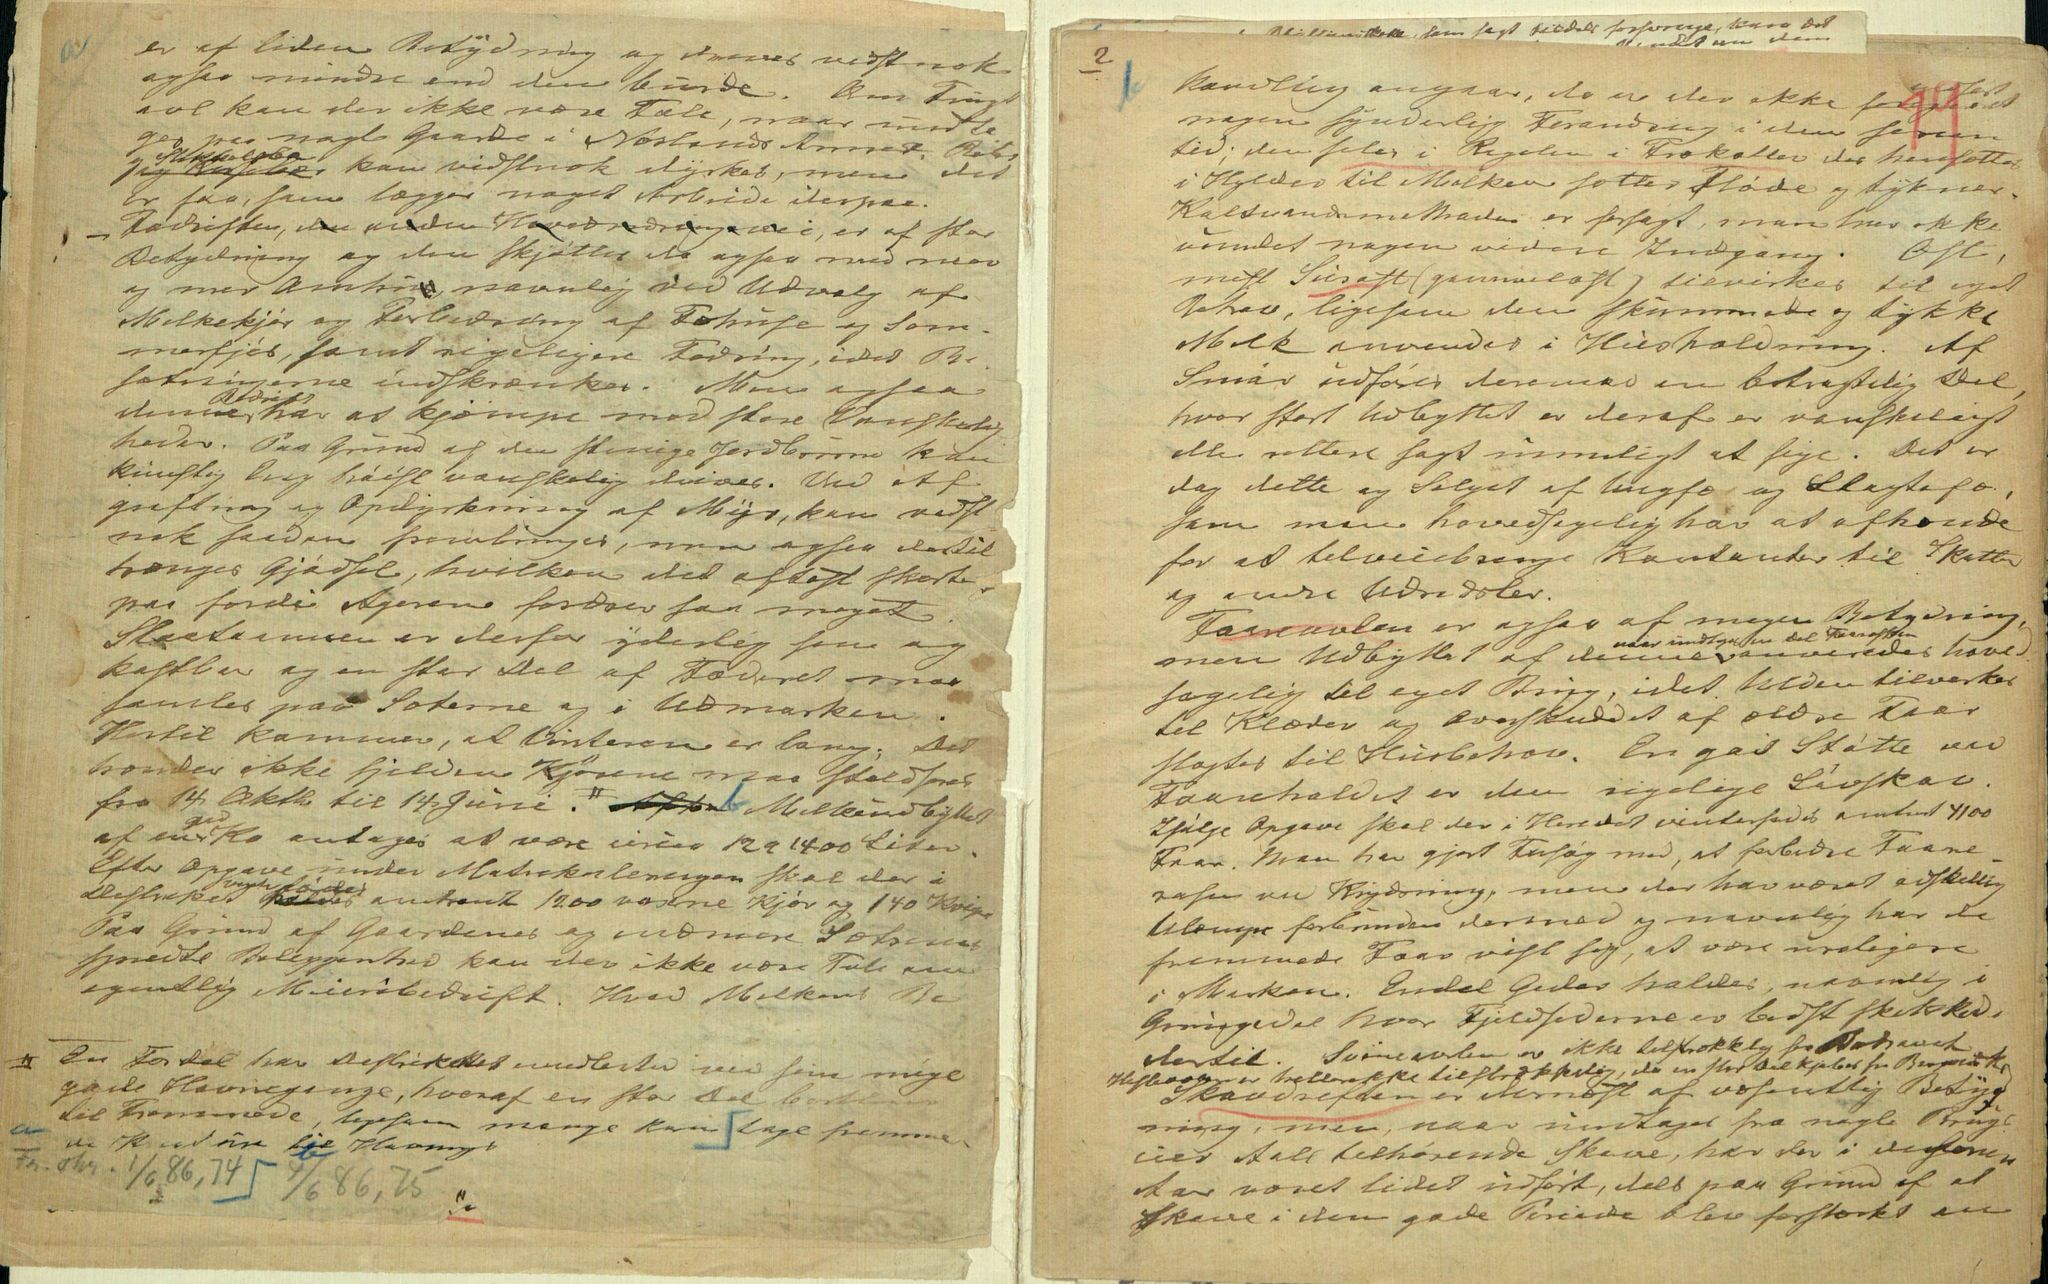 er af liden Betydning og drives vidst nok
ogsaa mindre end den burde. Om Frugt
avl kan der ikke være Tale, naar undta
ges paa nogle Gaarde i Norlands Annex.
kan vidstnok dyrkes, men det
er faa, som lægger noget Arbeide derpaa.
Fædriften, den anden Hovednæringsvei, er af stor
Betydning og den skjøttes da ogsaa med mer
og mer Omhu, navnlig ved Udvalg af
Melkekjør og Forbedring af Fæhuse og Som-
merfjøs, samt rigeligere Fodring, idet Be
sætningerne indskrænkes. Men ogsaa
denne har at kjæmpe med store Vanskelig
heder. Paa Grund af den stenige Jordbund kan
kunstig Eng høist vanskelig drives. Ved Af
grøftning og Opdyrkning af Myr, kan vidst
nok saadan frembringes, men ogsaa dertil
trænges Gjødsel, hvilken det oftest skorter
paa fordi Ageren fordrer saa meget.
Slaataannen er derfor yderlig sen og
kostbar og en stor Del af Foderet maa
samles paa Sæterne og i Udmarken.
Hertil kommer, at Vinteren er lang. Det
hænder ikke sjelden Kjørene maa staldfores
fra 14 Oktb til 14 Juni. " Melkeudbyttet
af en god Ko antages at være circa 12 a 1400 Liter.
Efter Opgave under Matrikuleringen skal der i
Distriktet vinterfødes omtrent 1200 voxne Kjør og 140 Kviger
Paa Grund af Gaardenes og end mere Sæternes
spredte Beliggenhed kan der ikke være Tale om
egentlig Meieribedrift. Hvad Melkens Be
" En Fordel har Distriktet imidlertid ved sine mange
gode Havnegange, hvoraf en stor Del bortleies
til Fremmede, ligesom mange kan tage fremme
de Kreature til Havning
1/6 86, 74 4/6 86, 75
"
2
handling angaar, da er der ikke foregaaet
nogen synderlig Forandring i den senere
tid; den siles i Regelen i Trækoller der hensættes
i Hylder til Melken sætter Fløde og tykner.
Koldtvandsmethoden er forsøgt, men har ikke
vundet nogen videre Indgang. Ost,
mest Surost (gammelost) tilvirkes til eget
Behov, ligesom den skummede og tykke
Melk anvendes i Husholdning. Af
Smør udføres derimod en betragtelig Del,
hvor stort Udbyttet er deraf er vanskeligt
eller rettere sagt umuligt at sige. Det er
dog dette og Salget af Ungfæ og Slagtefæ,
som man hovedsagelig har at afhænde
for at tilveiebringe Kontanter til Skatter
og andre Udredsler.
Faareavlen er ogsaa af megen Betydning,
men Udbyttet af denne naar undtages en Del Faarester anvendes hoved
sagelig til eget Brug, idet Ulden tilverkes
til Klæder og Overskuddet af ældre Faar
slagtes til Husbehov. En god Støtte ved
Faareholdet er den rigelige Løvskov.
Ifølge Opgave skal der i Herredet vinterfødes omtrent 4100
Faar. Man har gjort Forsøg med, at forbedre Faare-
rasen ved Krydsning, men der har været adskillig
Ulempe forbunden dermed og navnlig har de
fremmede Faar vist sig, at være uroligere
i Marken. Endel Geder holdes, navnlig i
Grungedal hvor Fjeldsiderne er bedst skikkede
dertil. Svineavlen er ikke tilstrækkelig for Behovet
Hesteavlen er heller ikke tilstrækkelig, da en stor Del kjøbes fra
Skovdriften er dernæst af væsentlig Betyd
ning, men, naar undtages fra nogle Brug
tilhørende Skove, har der i de senere
Aar været lidet udført, dels paa Grund af at
Skove i den gode Periode blev forstærkt an